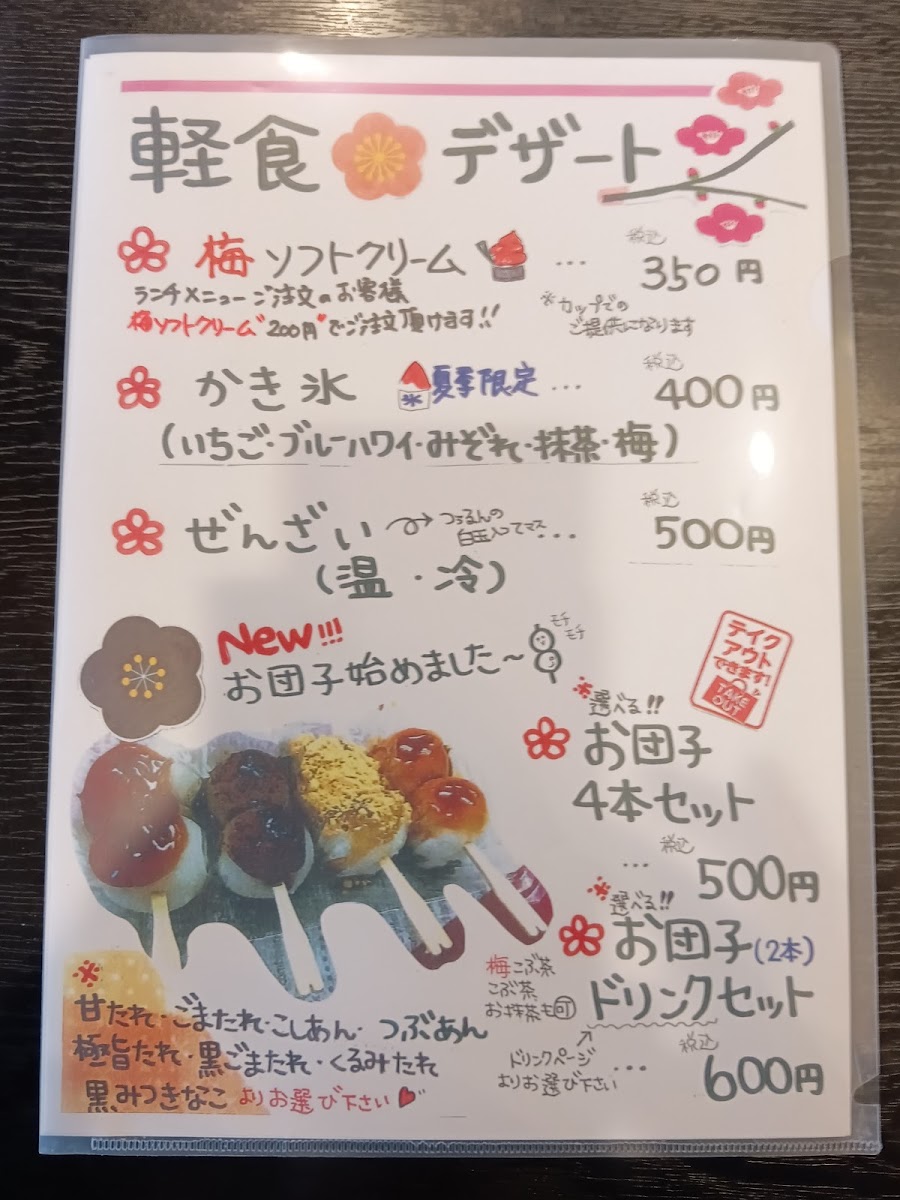 軽食 デザート
梅ソフトクリーム … 税込 350円
ランチメニューご注文のお客様
梅ソフトクリーム"200円"でご注文頂けます!!
※カップでの
ご提供になります
かき氷 氷 夏季限定 … 税込 400円
(いちご・ブルーハワイ・みぞれ・抹茶・梅)
ぜんざい つるるんの
白玉入ってマス … 税込 500円
(温・冷)
New!!!
お団子始めました〜
モチ
モチ
テイク
アウト
できます!
TAKE
OUT
※選べる!!
お団子
4本セット
… 税込 500円
※選べる!!
お団子(2本)
ドリンクセット
梅こぶ茶
こぶ茶
お抹茶も可
ドリンクページ
よりお選び下さい
… 税込 600円
※
甘たれ・ごまたれ・こしあん・つぶあん
極旨たれ・黒ごまたれ・くるみたれ
黒みつきなこ よりお選び下さい